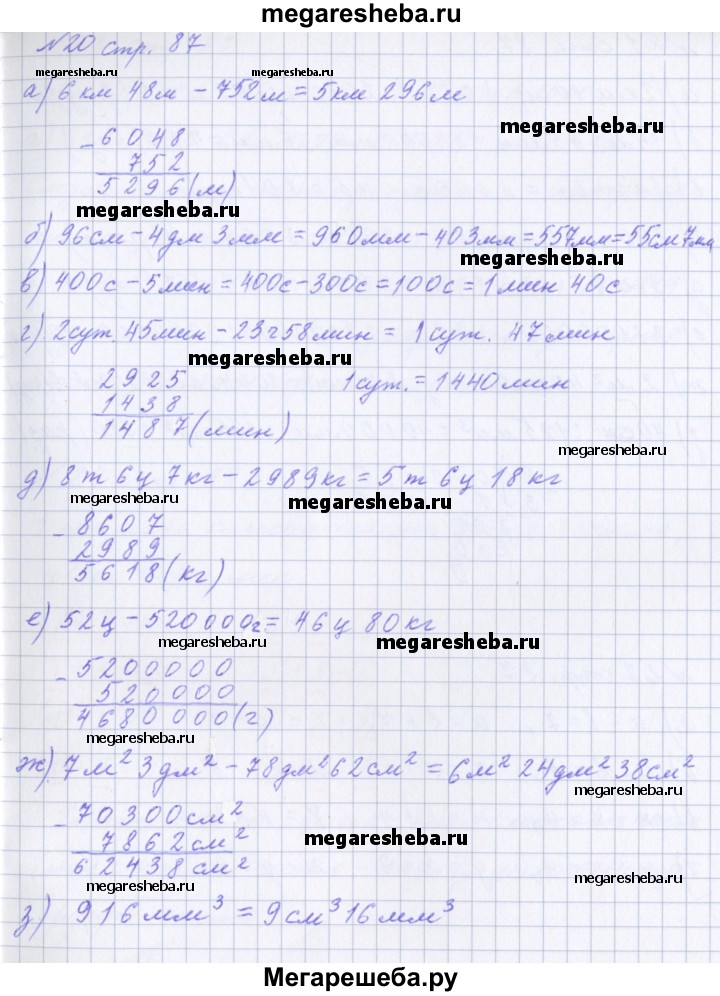 megaresheba.ru
№20 стр. 87
megaresheba.ru megaresheba.ru
а) 6 км 48м - 752м = 5км 296м
megaresheba.ru
- 6048
752
5296 (м)
megaresheba.ru
б) 96см - 4дм 3мм = 960мм - 403мм = 557мм = 55см 7мм
megaresheba.ru
в) 400с - 5мин = 400с - 300с = 100с = 1мин 40с
г) 2сут. 45мин - 23ч 58мин = 1сут. 47мин
megaresheba.ru
2925 1сут. = 1440мин
1438
1487 (мин)
megaresheba.ru
д) 8т 6ц 7кг - 2989кг = 5т 6ц 18кг
megaresheba.ru megaresheba.ru
- 8607
2989
5618 (кг)
е) 52ц - 520000г = 46ц 80кг
megaresheba.ru megaresheba.ru
- 5200000
520000
4680000 (г)
megaresheba.ru
ж) 7м² 3дм² - 78дм² 62см² = 6м² 24дм² 38см²
megaresheba.ru
- 70300см²
7862см²
62438см²
megaresheba.ru
megaresheba.ru
megaresheba.ru
з) 916мм³ = 9см³ 16мм³
Мегарешеба.ру